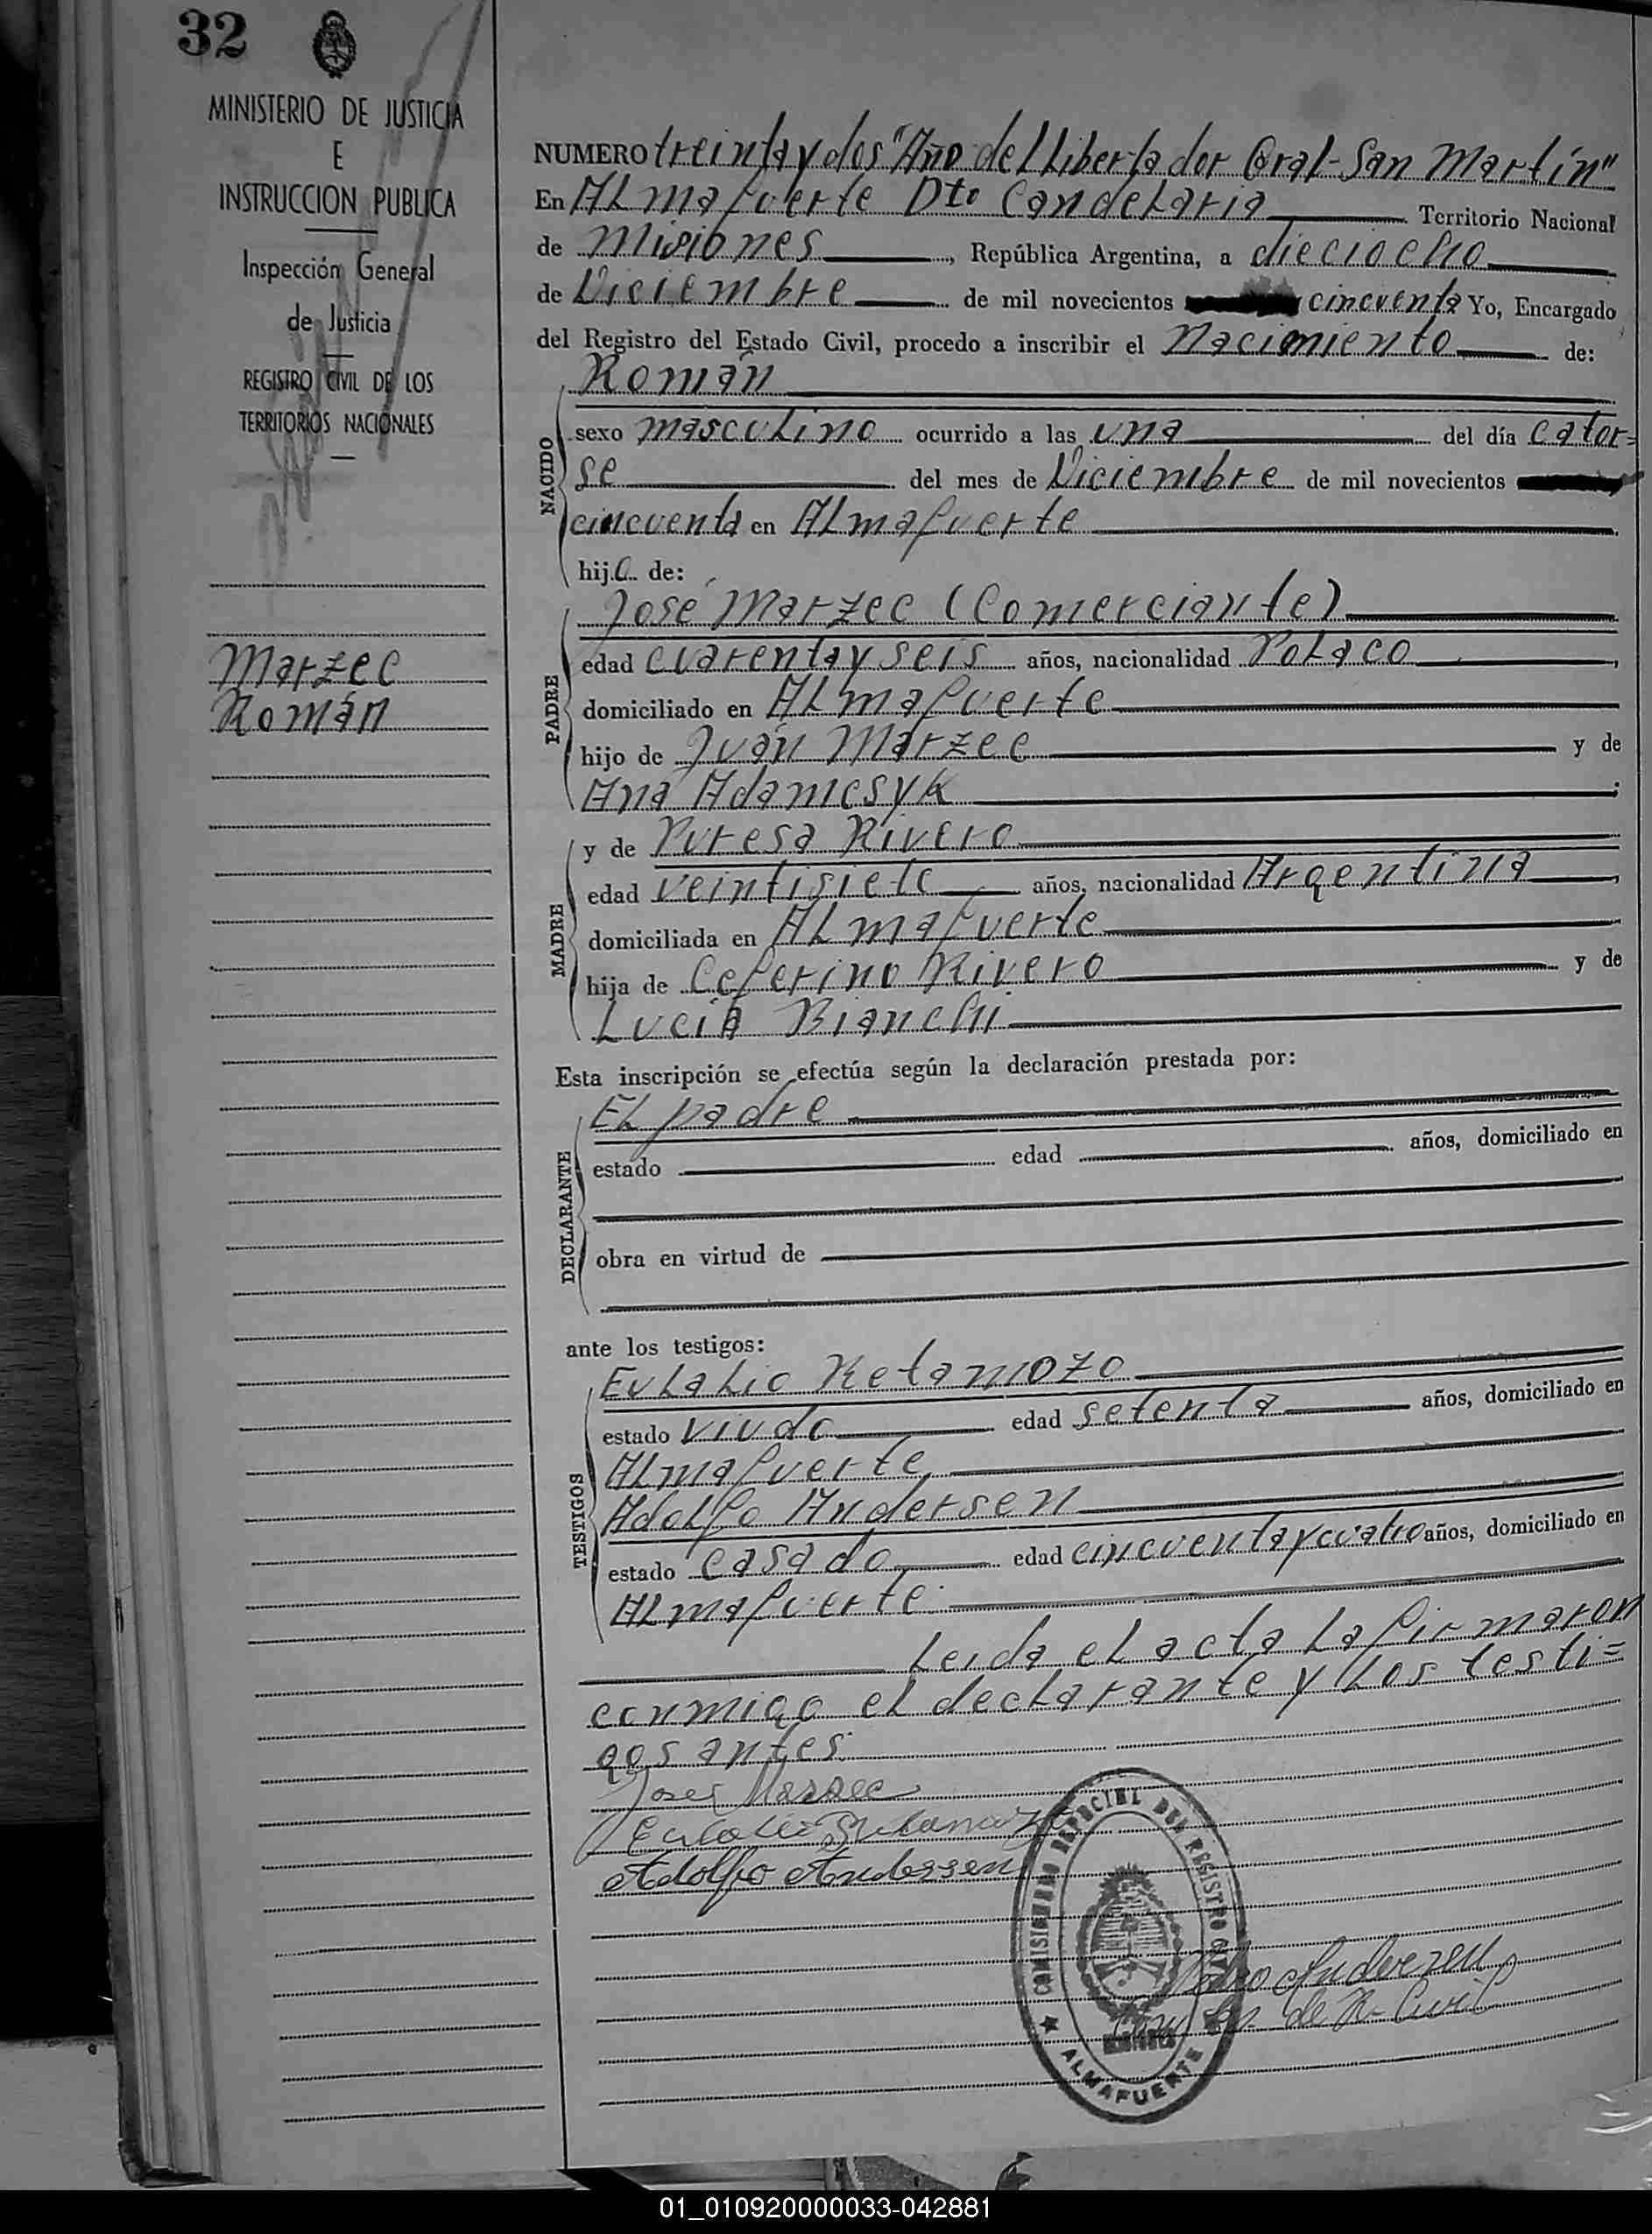 32
MINISTERIO DE JUSTICIA
E
INSTRUCCION PUBLICA
Inspección General
de Justicia
REGISTRO CIVIL DE LOS
TERRITORIOS NACIONALES
Marzec
Román
NUMERO treinta y dos "Año del Libertador Gral-San Martín"
En Almafuerte Dto Candelaria Territorio Nacional
de Misiones, República Argentina, a dieciocho
de Diciembre de mil novecientos cincuenta Yo, Encargado
del Registro del Estado Civil, procedo a inscribir el Nacimiento de:
NACIDO
Román
sexo masculino ocurrido a las una del día cator=
se del mes de Diciembre de mil novecientos
cincuenta en Almafuerte
hijo de:
PADRE
José Marzec (Comerciante)
edad cuarenta y seis años, nacionalidad Polaco,
domiciliado en Almafuerte
hijo de Juán Marzec y de
Ana Adamcsyk;
MADRE
y de Teresa Rivero
edad veintisiete años, nacionalidad Argentina,
domiciliada en Almafuerte
hija de Ceferino Rivero y de
Lucía Bianchi
Esta inscripción se efectúa según la declaración prestada por:
DECLARANTE
El padre
estado edad años, domiciliado en
obra en virtud de
ante los testigos:
TESTIGOS
Eulalio Retamozo
estado viudo edad setenta años, domiciliado en
Almafuerte
Adolfo Andersen
estado casado edad cincuenta y cuatro años, domiciliado en
Almafuerte.
Leida el acta la firmaron
conmigo el declarante y los testi=
gos antes.
Jose Marzec
Eulalio Retamozo
Adolfo Anderssen
COMISIONADO ESPECIAL DEL REGISTRO CIVIL
MISIONES
ALMAFUERTE
de R- Civil
01_010920000033-042881